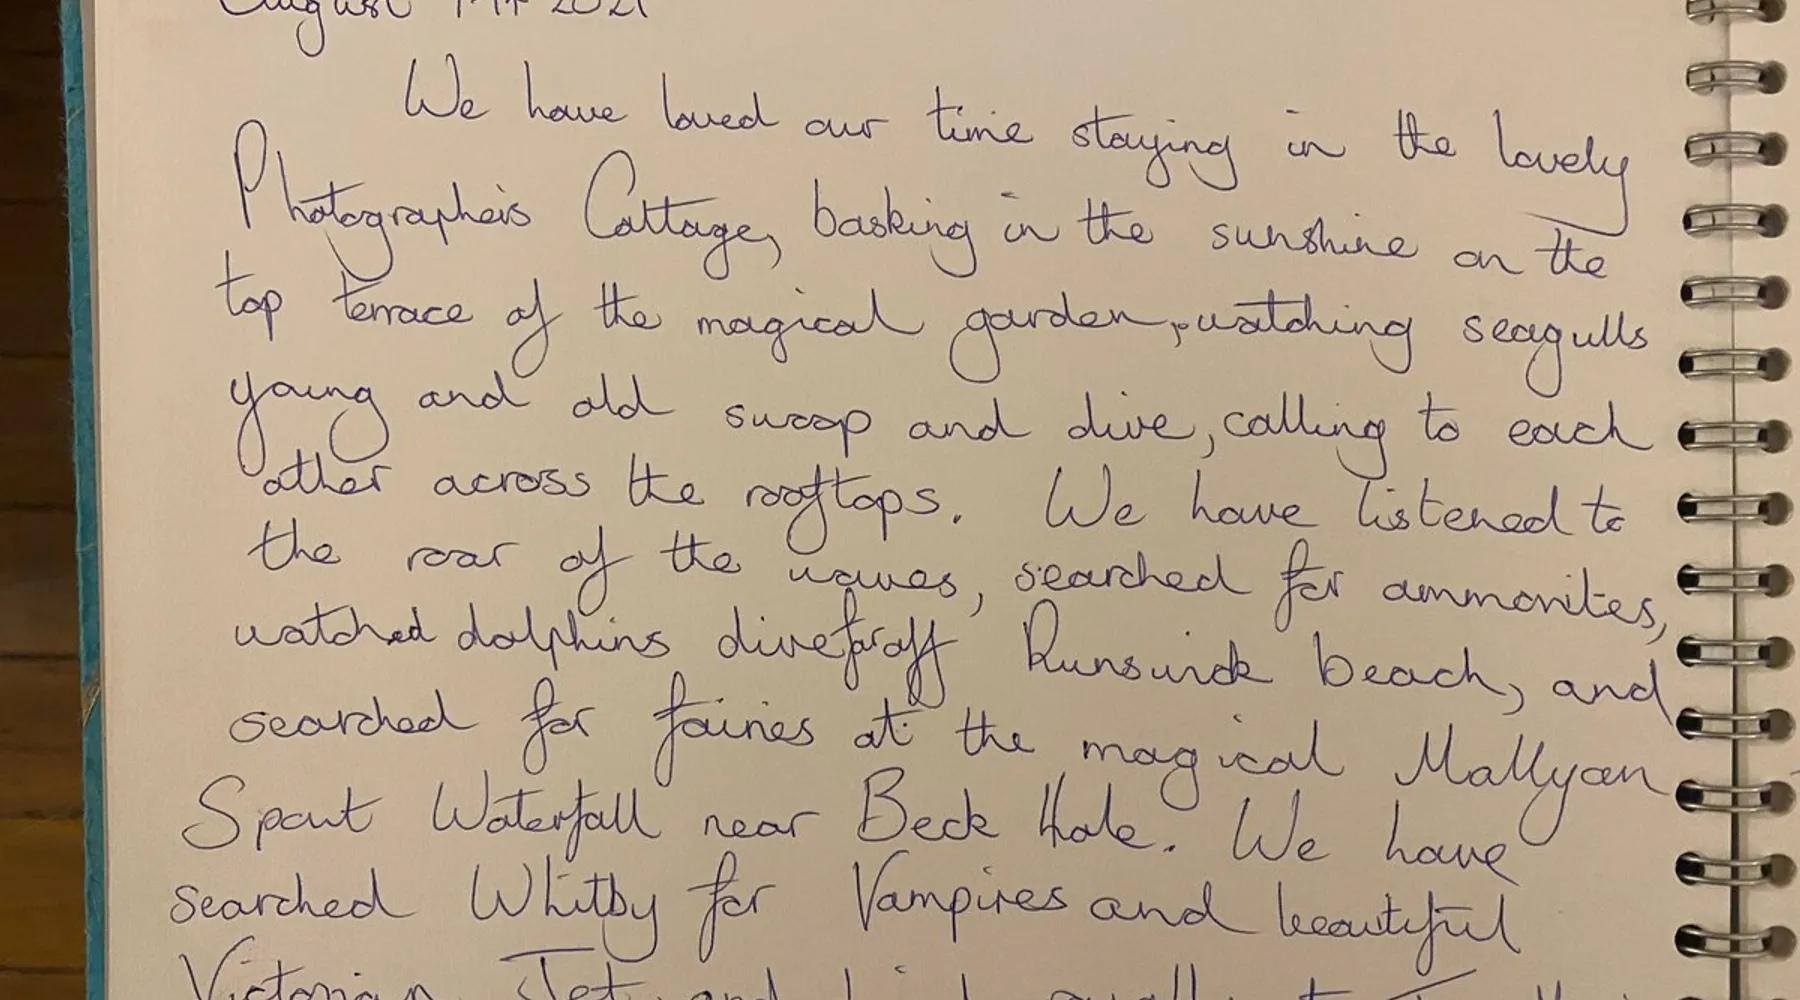 August 2021
We have loved our time staying in the lovely
Photographer's Cottage, basking in the sunshine on the
top terrace of the magical garden, watching seagulls
young and old swoop and dive, calling to each
other across the rooftops. We have listened to
the roar of the waves, searched for ammonites,
watched dolphins dive far off Runswick beach, and
searched for fairies at the magical Mallyan
Spout Waterfall near Beck Hole. We have
searched Whitby for Vampires and beautiful
Victorian Jet, and